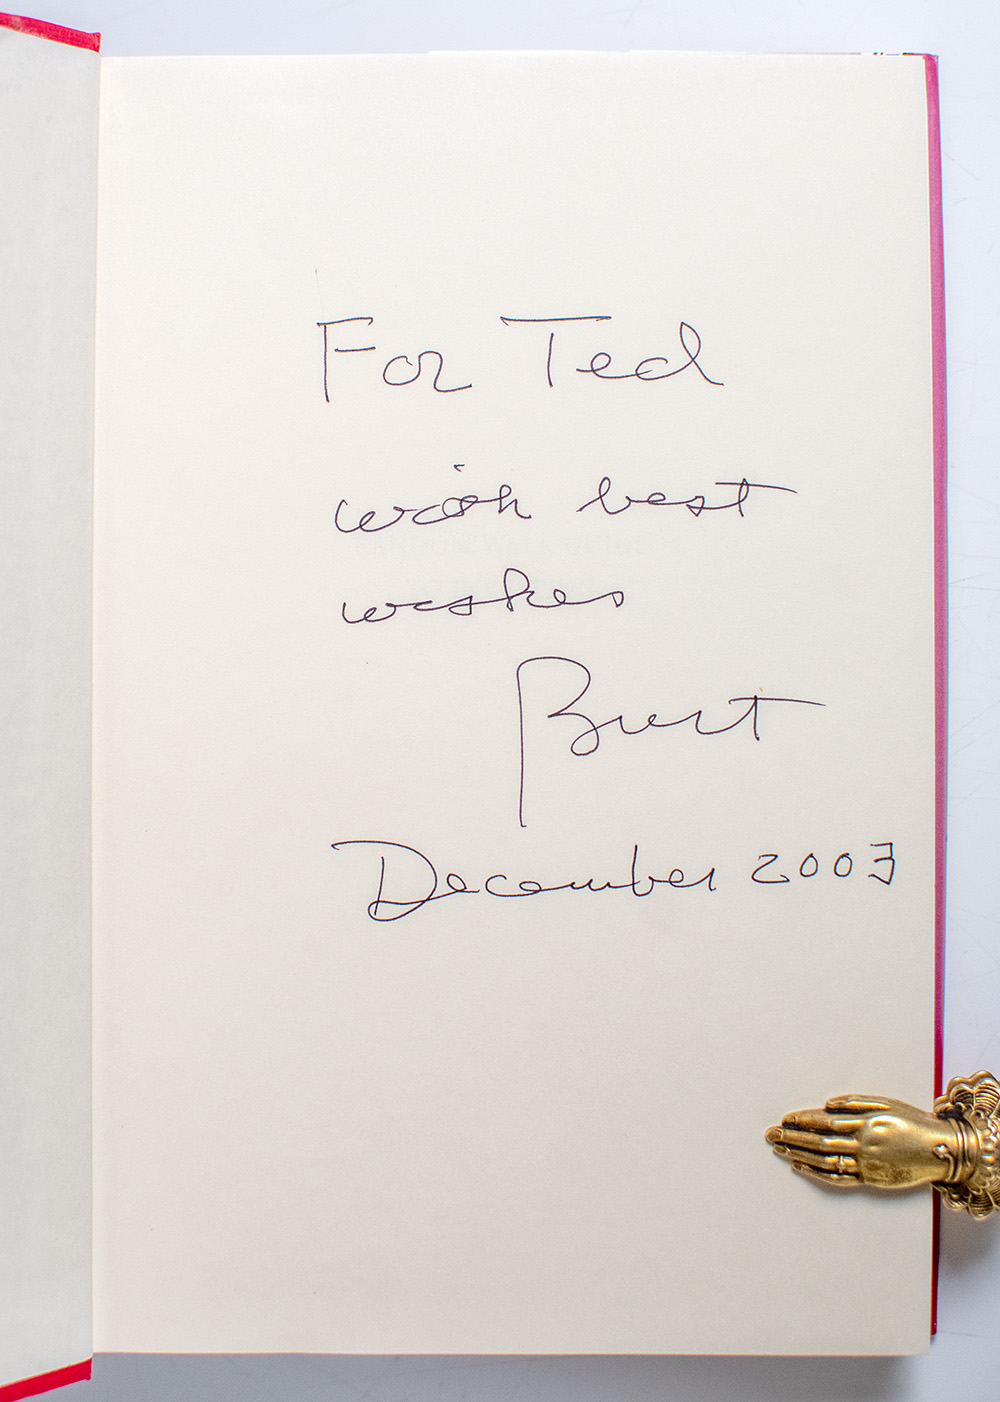 For Ted
with best
wishes
Burt
December 2003